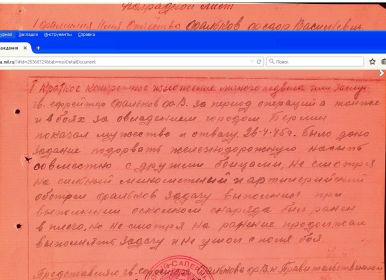 Наградной лист
1 Фамилия Имя Отчество Фалилов Федор Васильевич
Закладки Инструменты Справка
I Краткое конкретное изложение личного подвига или заслуг
гв. ефрейтор Ф.В. за период операции а также
и в боях за овладением городом Берлин
показал мужество и отвагу. 26-4-45г. было дано
задание подорвать железнодорожную насыпь
совместно с другими бойцами, не смотря
на сильный минометный и артиллерийский
обстрел задачу выполнил при
выполнении осколком снаряда был ранен
в плечо, но не смотря на ранение продолжал
выполнять задачу и не ушол с поля боя
Представляю гв. ефрейтора Ф.В. к Правительственной